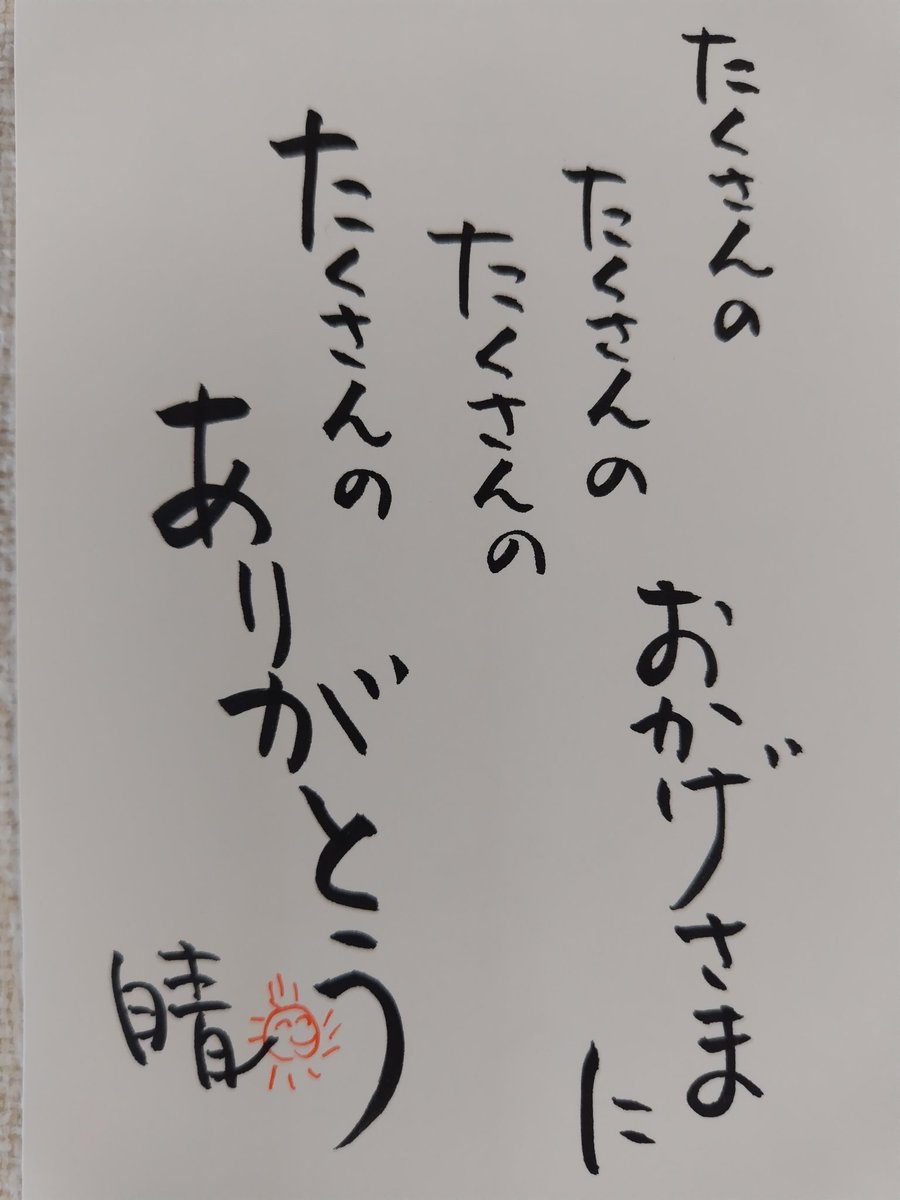 たくさんの
たくさんの
おかげさま
に
たくさんの
たくさんの
ありがとう
晴